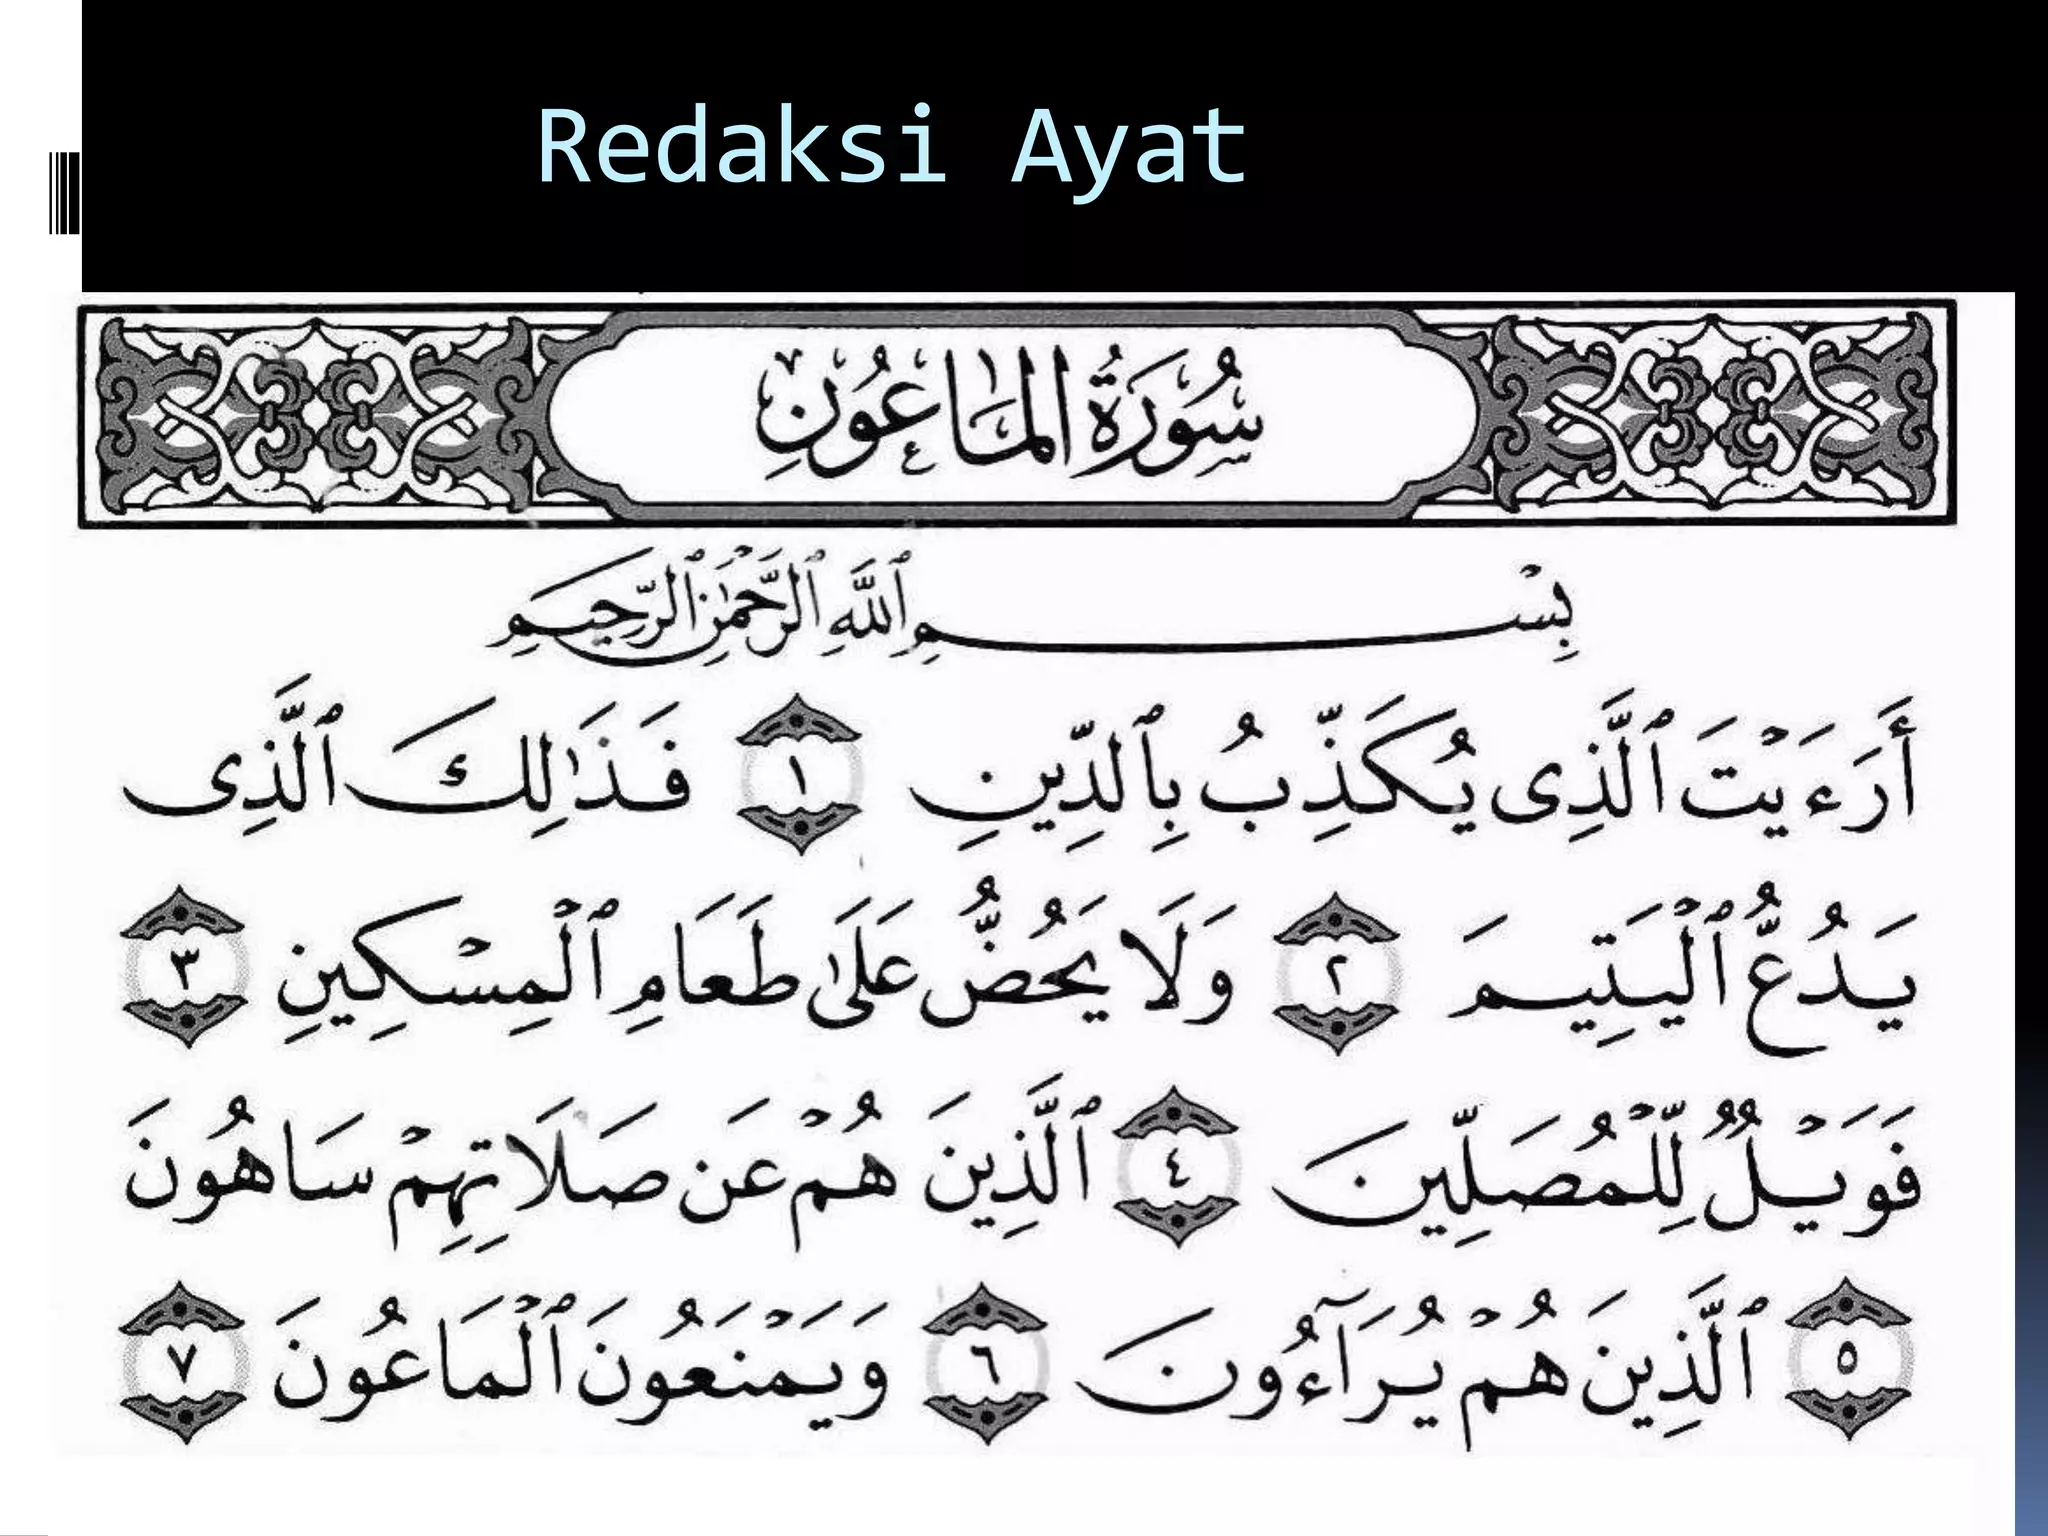 Redaksi Ayat
سُورَةُ المَاعُونِ
بِسْمِ ٱللَّهِ ٱلرَّحْمَٰنِ ٱلرَّحِيمِ
أَرَءَيْتَ ٱلَّذِى يُكَذِّبُ بِٱلدِّينِ ١ فَذَٰلِكَ ٱلَّذِى
يَدُعُّ ٱلْيَتِيمَ ٢ وَلَا يَحُضُّ عَلَىٰ طَعَامِ ٱلْمِسْكِينِ ٣
فَوَيْلٌ لِّلْمُصَلِّينَ ٤ ٱلَّذِينَ هُمْ عَن صَلَاتِهِمْ سَاهُونَ
٥ ٱلَّذِينَ هُمْ يُرَآءُونَ ٦ وَيَمْنَعُونَ ٱلْمَاعُونَ ٧